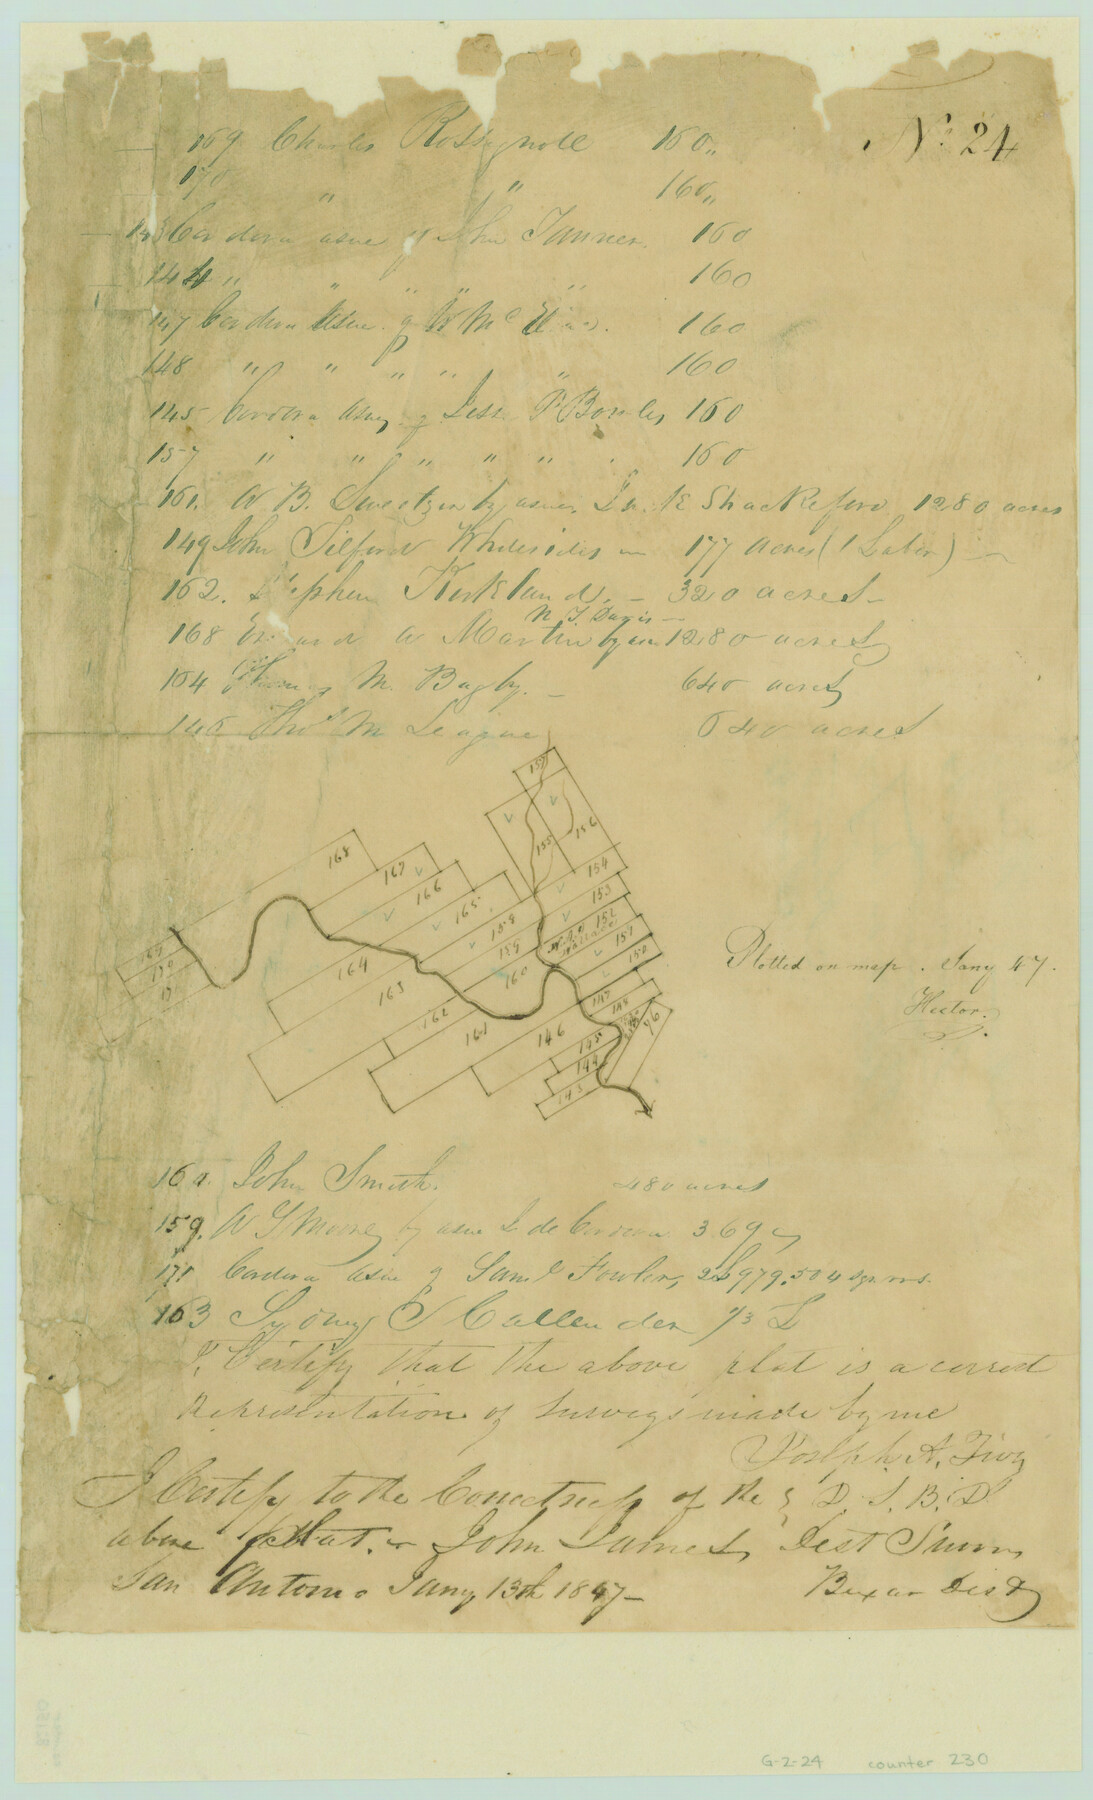 169 Charles Rossignole 160 „
No 24
170 " " 160 „
143 Cordova asne of John Tanner 160
144 " " " " " 160
147 Cordova asne of W Mc 160
148 " " " " " 160
145 Cordova asne of Jesse P. Bowles 160
157 " " " " " 160
161. W B. Sweetzer by asne. Shackleford 1280 acres
149 John Telford Whitesides 177 acres (1 Labor)
162. Stephen Kirkland. 320 acres
N. T. Davis
168 W Martin by asne 1280 acres
154 Thomas M. Bagby. 640 acres
146 Thos M League 640 acres
157
156
155
168
167
154
166
153
165
152
158
159
151
169
170
17
164
160
150
163
147
148
162
161
146
46
145
144
143
Plotted on map. Jany 47.
Hector.
160. John Smith. 480 acres
159. W S Moore by asne J. de Cordova 369
171 Cordova asne of Saml Fowler, 979,504 sqr vrs.
163 Sydney S Callender 1/3 L
I, Certify that the above plat is a correct
Representation of Surveys made by me
Joseph A. Tivy
D. S. B. D
I Certify to the Correctness of the
above plat. John James, Dist Surv
San Antonio Jany 13th 1847 Bexar Dist
G-2-24 counter 230